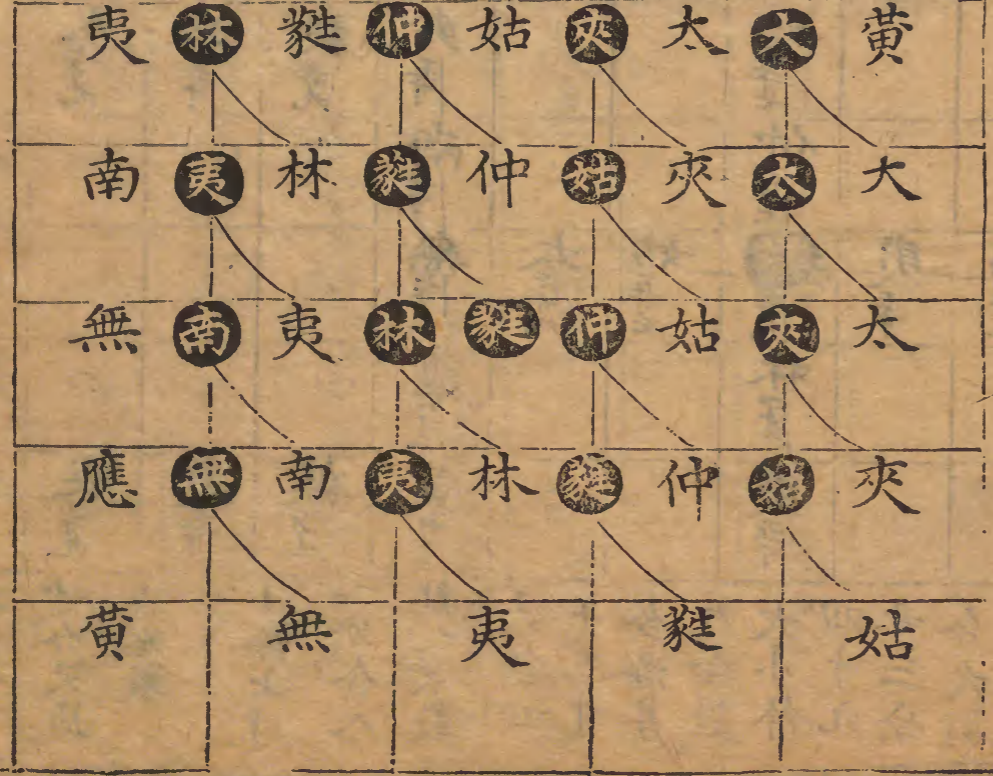 黃大太夾姑仲㽔林夷
大太夾姑仲㽔林夷南
太夾姑仲㽔林夷南無
夾姑仲㽔林夷南無應
姑㽔夷無黃